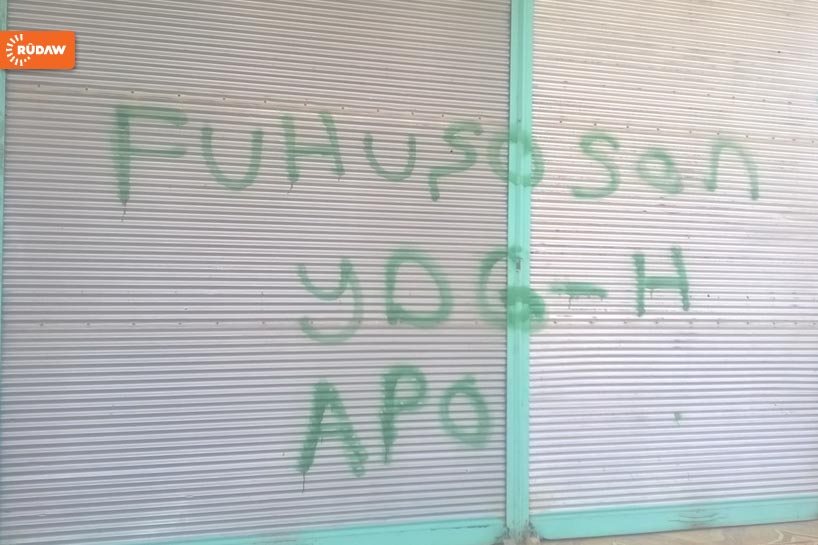 RÛDAW
FUHUŞO SON
YDG-H
APO